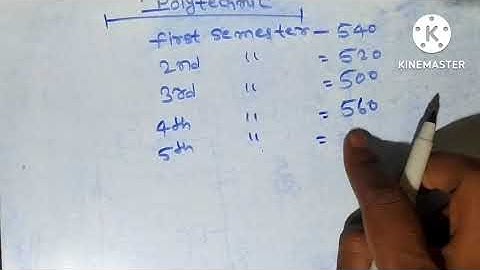 Polytechnic
first semester - 540
2nd " = 520
3rd " = 500
4th " = 560
5th " =
KINEMASTER